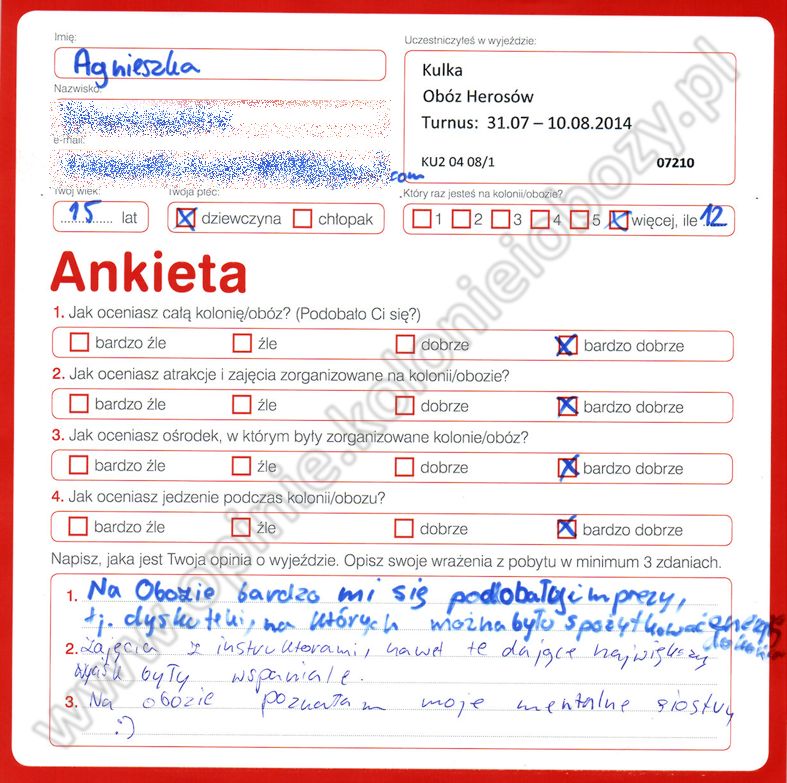 Imię:
Agnieszka
Uczestniczyłeś w wyjeździe:
Kulka
Obóz Herosów
Turnus: 31.07 – 10.08.2014
KU2 04 08/1 07210
Nazwisko:
e-mail:
com
Twój wiek:
15 lat
Twoja płeć:
dziewczyna chłopak
Który raz jesteś na kolonii/obozie?
1 2 3 4 5 więcej, ile 12
Ankieta
1. Jak oceniasz całą kolonię/obóz? (Podobało Ci się?)
bardzo źle źle dobrze bardzo dobrze
2. Jak oceniasz atrakcje i zajęcia zorganizowane na kolonii/obozie?
bardzo źle źle dobrze bardzo dobrze
3. Jak oceniasz ośrodek, w którym były zorganizowane kolonie/obóz?
bardzo źle źle dobrze bardzo dobrze
4. Jak oceniasz jedzenie podczas kolonii/obozu?
bardzo źle źle dobrze bardzo dobrze
Napisz, jaka jest Twoja opinia o wyjeździe. Opisz swoje wrażenia z pobytu w minimum 3 zdaniach.
1. Na Obozie bardzo mi się podobały imprezy,
tj. dyskoteki, na których można było spożytkować energię
2. Zajęcia z instruktorami, nawet te dające największy
wycisk były wspaniałe.
3. Na obozie poznałam moje mentalne siostry
:)
www.opinie.kolonieiobozy.pl